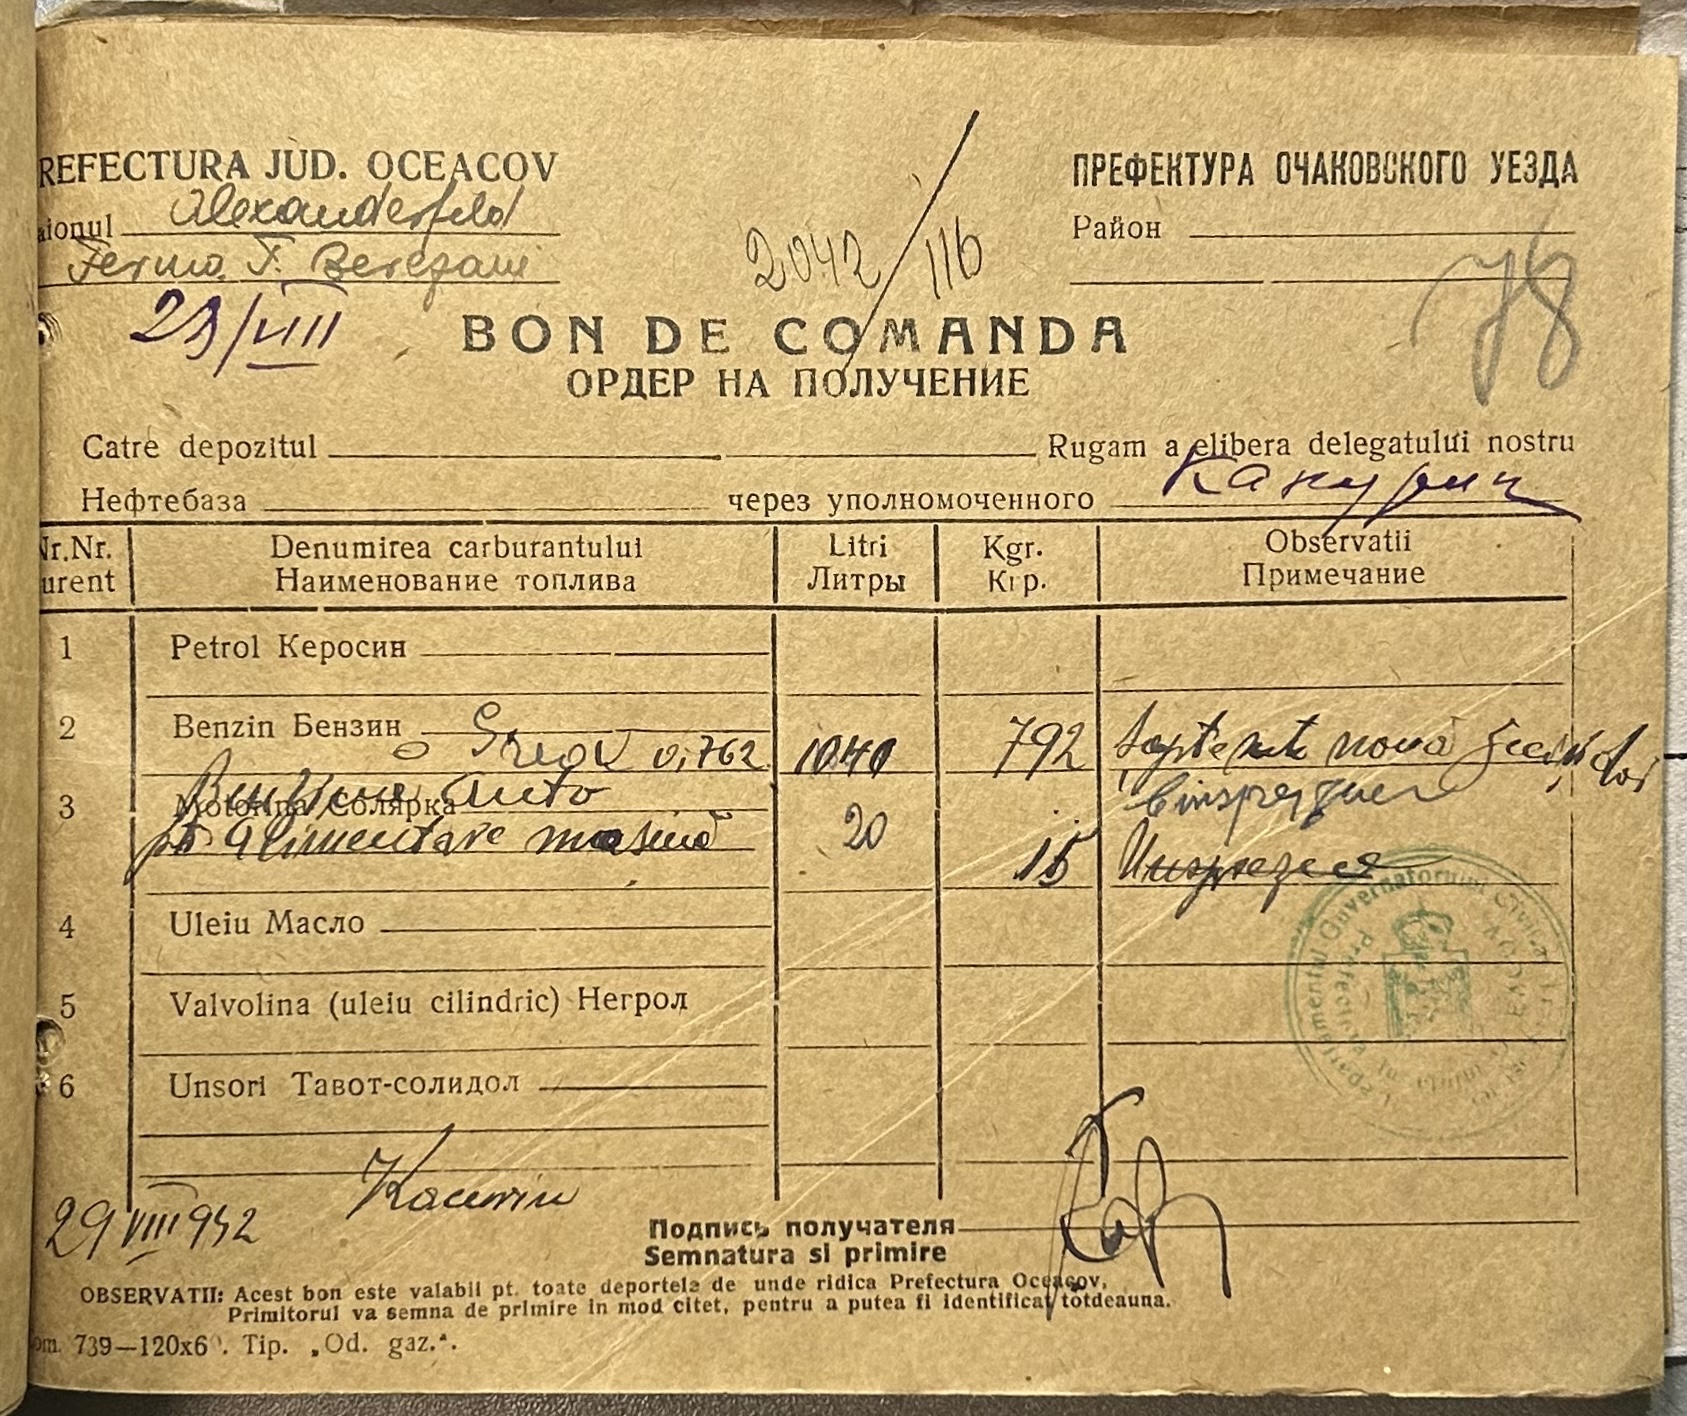 REFECTURA JUD. OCEACOV
ПРЕФЕКТУРА ОЧАКОВСКОГО УЕЗДА
aionul Alexanderfeld
Район
Ferma F. Berezani
2042/116
78
29/VIII
BON DE COMANDA
ОРДЕР НА ПОЛУЧЕНИЕ
Catre depozitul Rugam a elibera delegatului nostru
Нефтебаза через уполномоченного
Nr.Nr. Denumirea carburantului Litri Kgr. Observatii
urent Наименование топлива Литры Кгр. Примечание
1 Petrol Керосин
2 Benzin Бензин Greut 0,762 1040 792 Șapte sute nouă zeci și doi
3 Motorina Солярка Benzina auto 20 15 Cinsprezece
pt alimentare mașină Unsprezece
4 Uleiu Масло
5 Valvolina (uleiu cilindric) Негрол
6 Unsori Тавот-солидол
29 VIII 942
Подпись получателя
Semnatura si primire
OBSERVATII: Acest bon este valabil pt. toate deportele de unde ridica Prefectura Oceacov,
Primitorul va semna de primire in mod citet, pentru a putea fi identificat totdeauna.
om. 739—120x6 . Tip. „Od. gaz.“.
Guvernatorului Civil